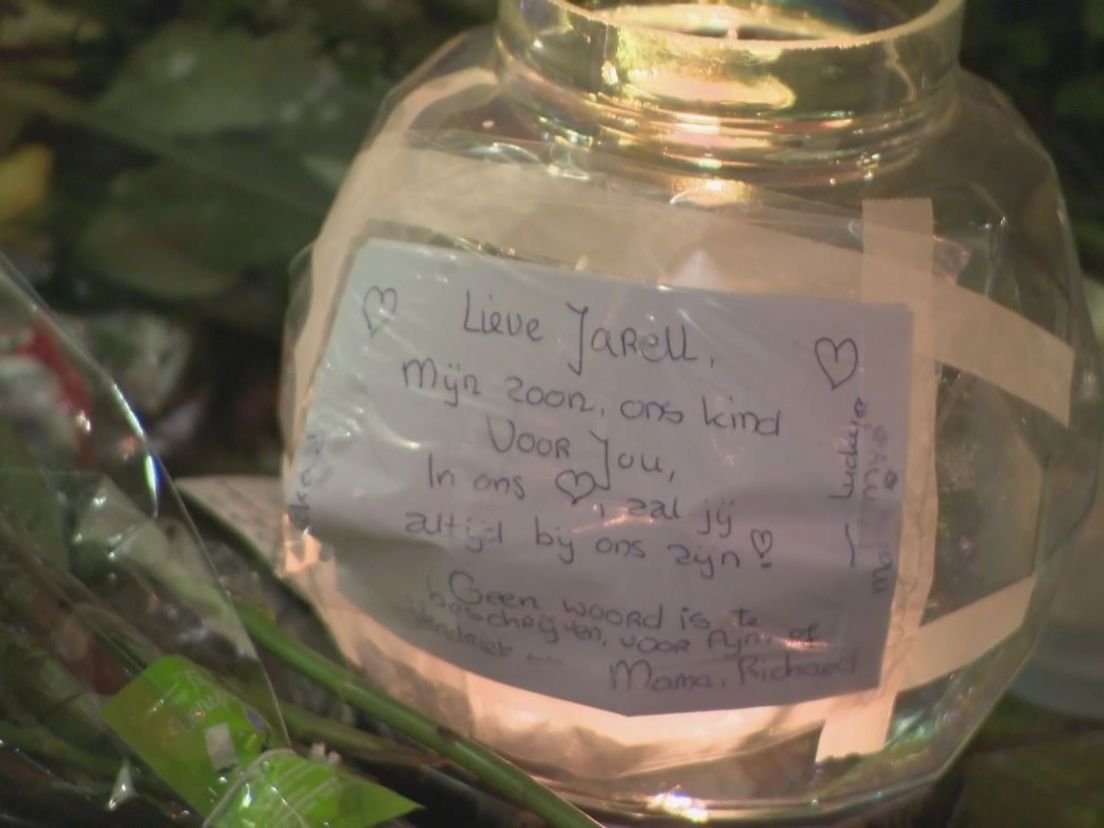 Lieve Jarell,
Mijn zoon, ons kind
Voor Jou,
In ons ♡, zal jij
altijd bij ons zijn!
Geen woord is te
beschrijven, voor pijn of
verdriet ...
Mama, Richard
Lucky